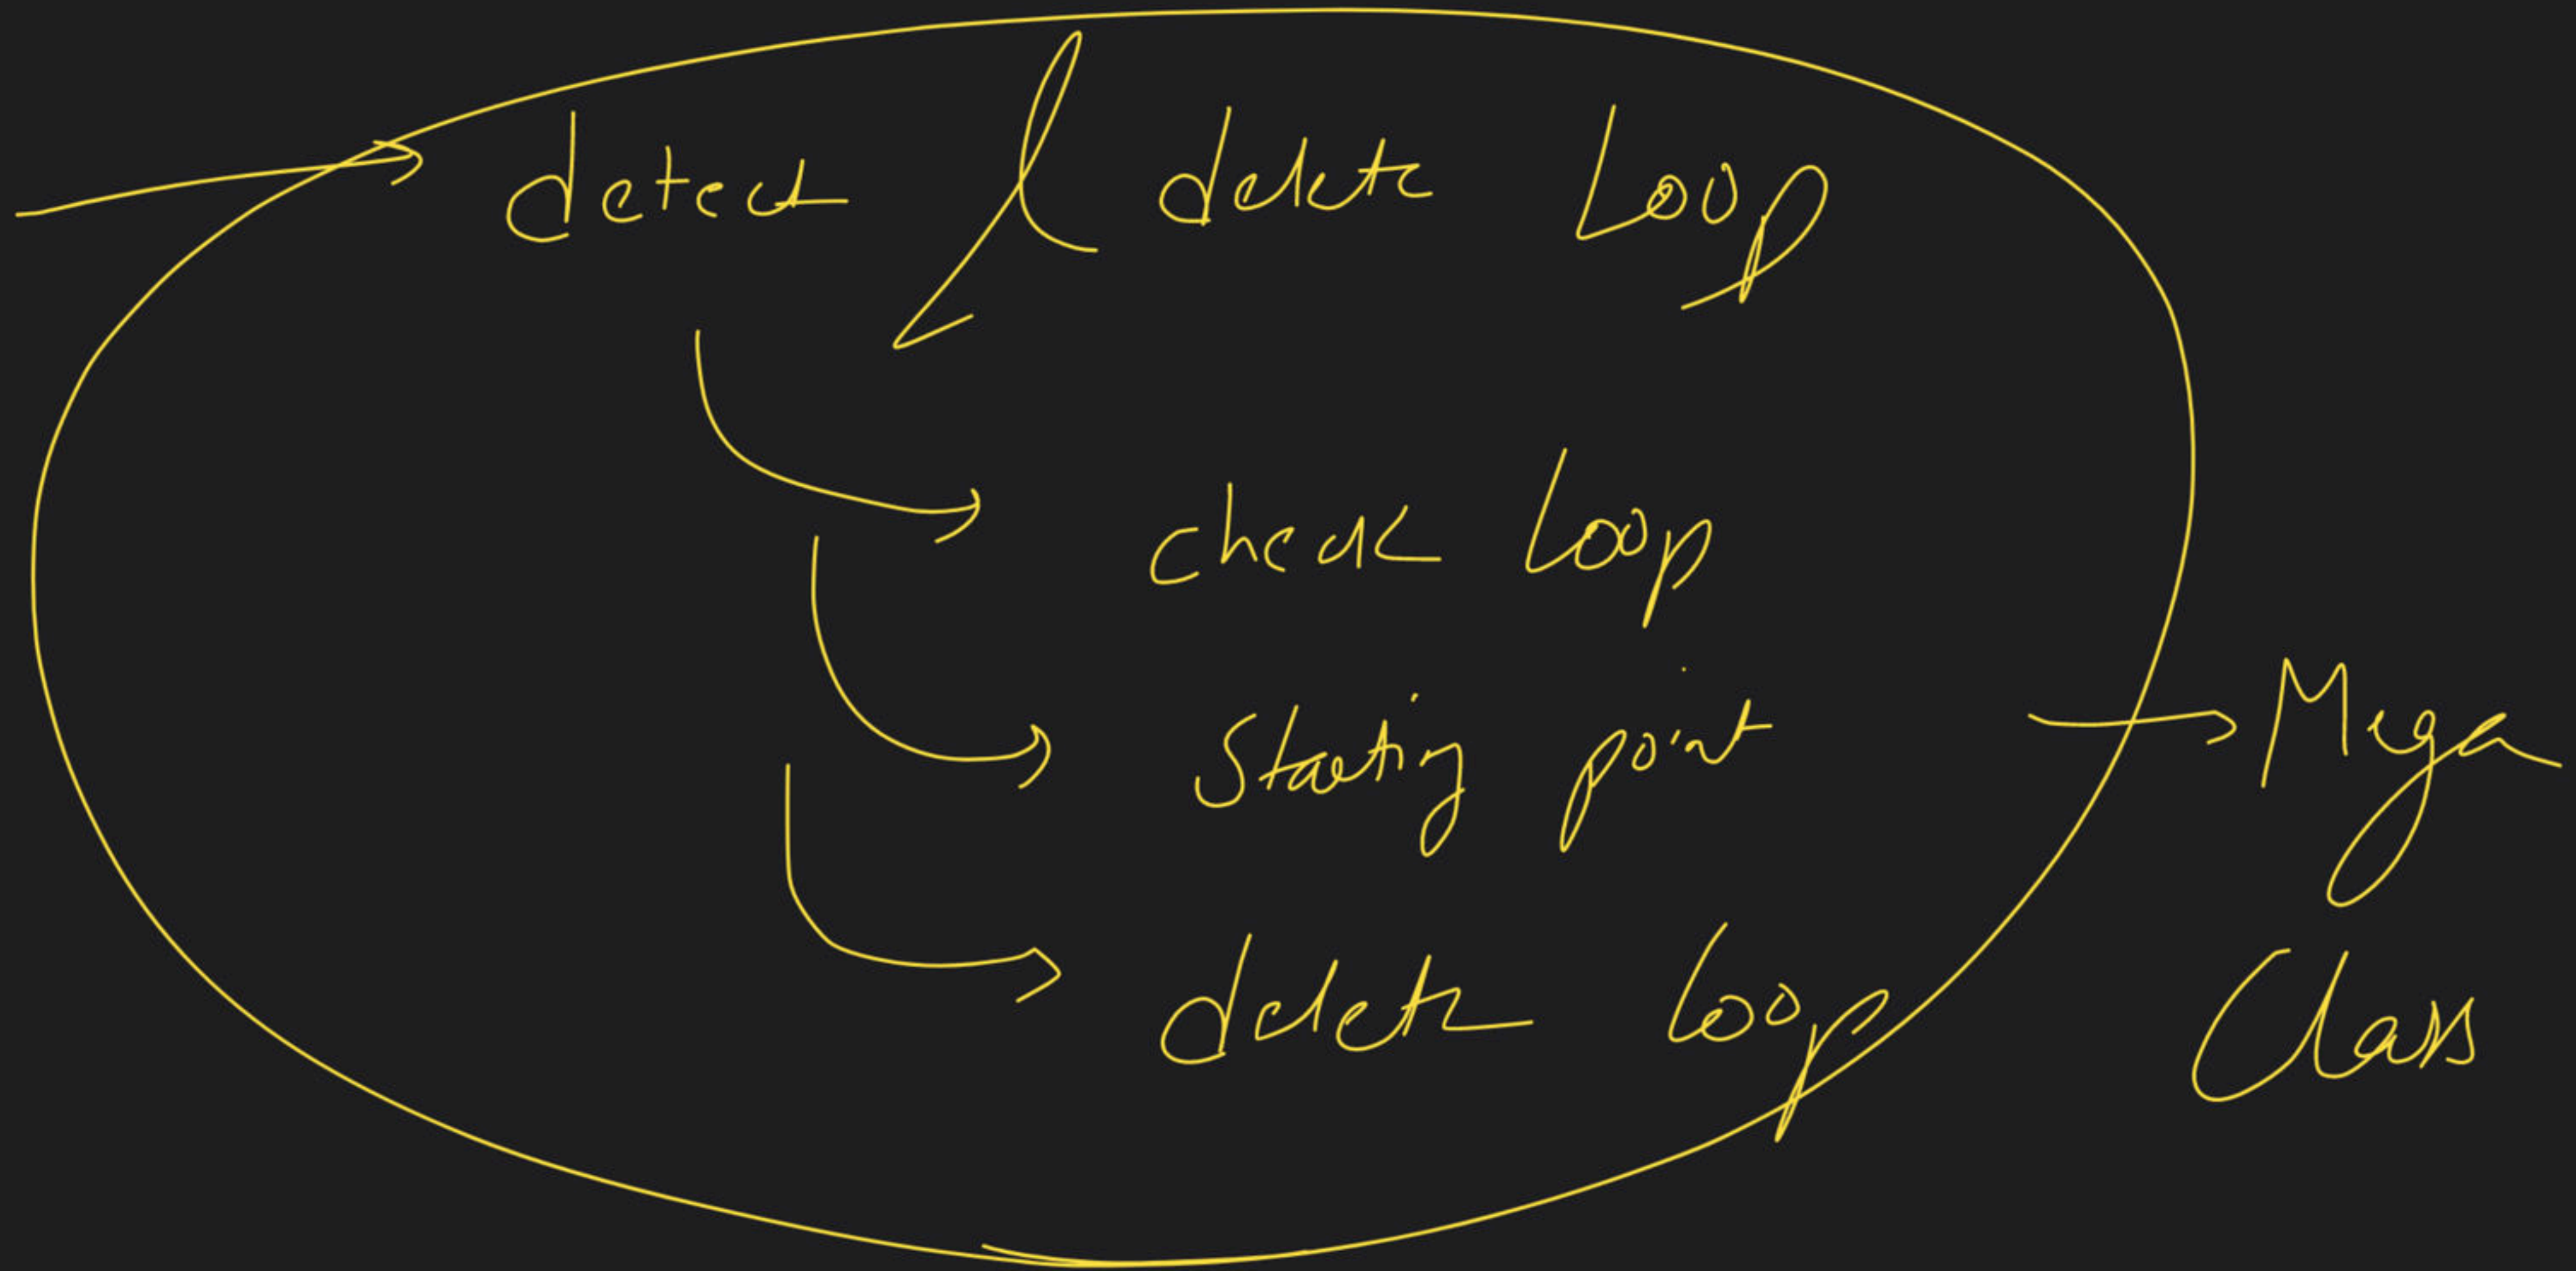 detect & delete Loop
check Loop
Starting point
delete loop
Mega
Class